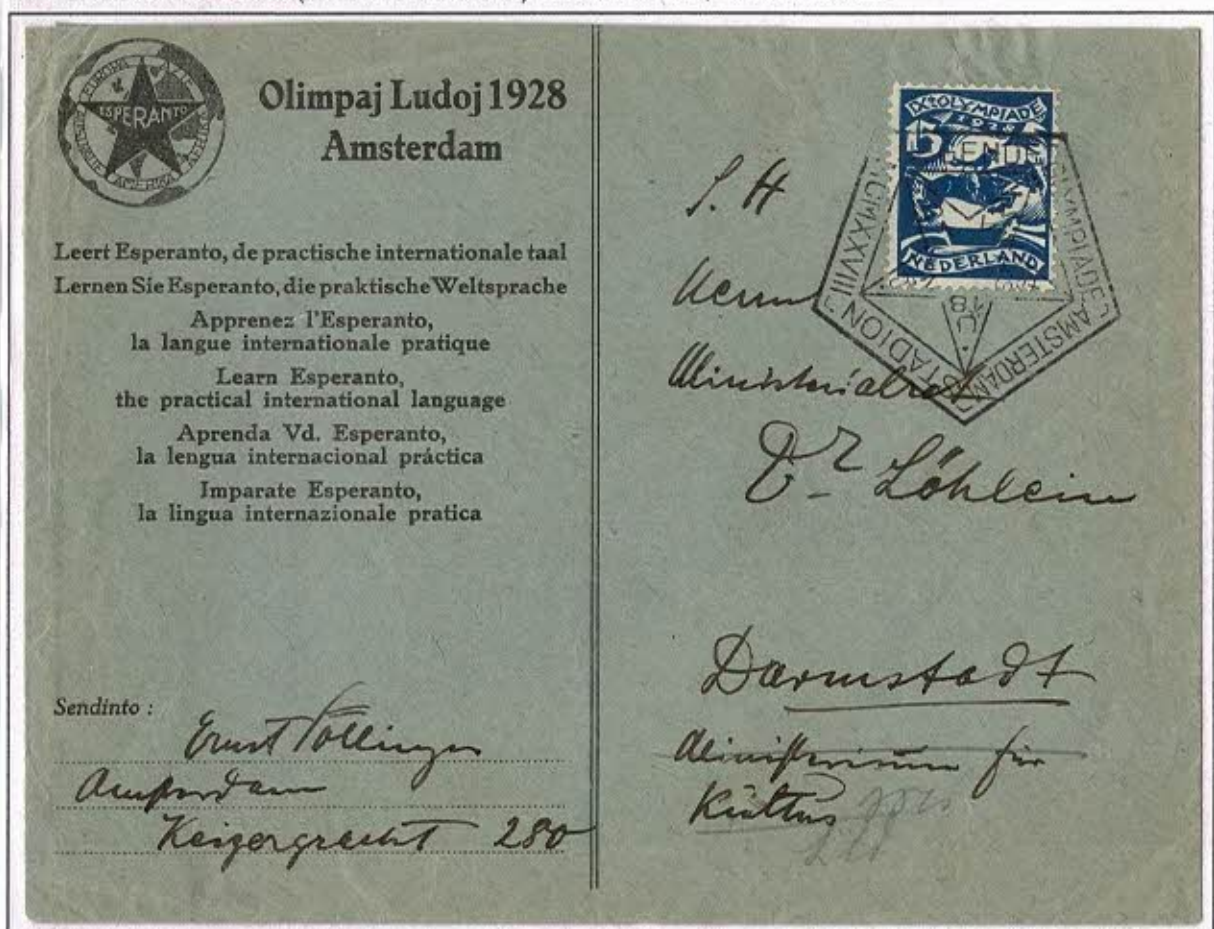 EUROPA AZIE AFRIKA AMERIKA
ESPERANTO
Olimpaj Ludoj 1928
Amsterdam
Leert Esperanto, de practische internationale taal
Lernen Sie Esperanto, die praktische Weltsprache
Apprenez l'Esperanto,
la langue internationale pratique
Learn Esperanto,
the practical international language
Aprenda Vd. Esperanto,
la lengua internacional práctica
Imparate Esperanto,
la lingua internazionale pratica
Sendinto :
Ernst
Amsterdam
Keizergracht 280
IXe OLYMPIADE
1928
15
NEDERLAND
OLYMPIADE AMSTERDAM
STADION MCMXXVIII
S. H
Herrn
Ministerialrat
Dr Löhlein
Darmstadt
Ministerium für
Kultus